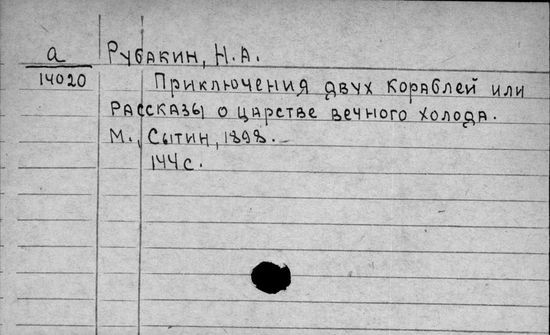 а Рубакин, Н.А.
14020 Приключения двух кораблей или
рассказы о царстве вечного холода.
М., Сытин, 1898.
144с.